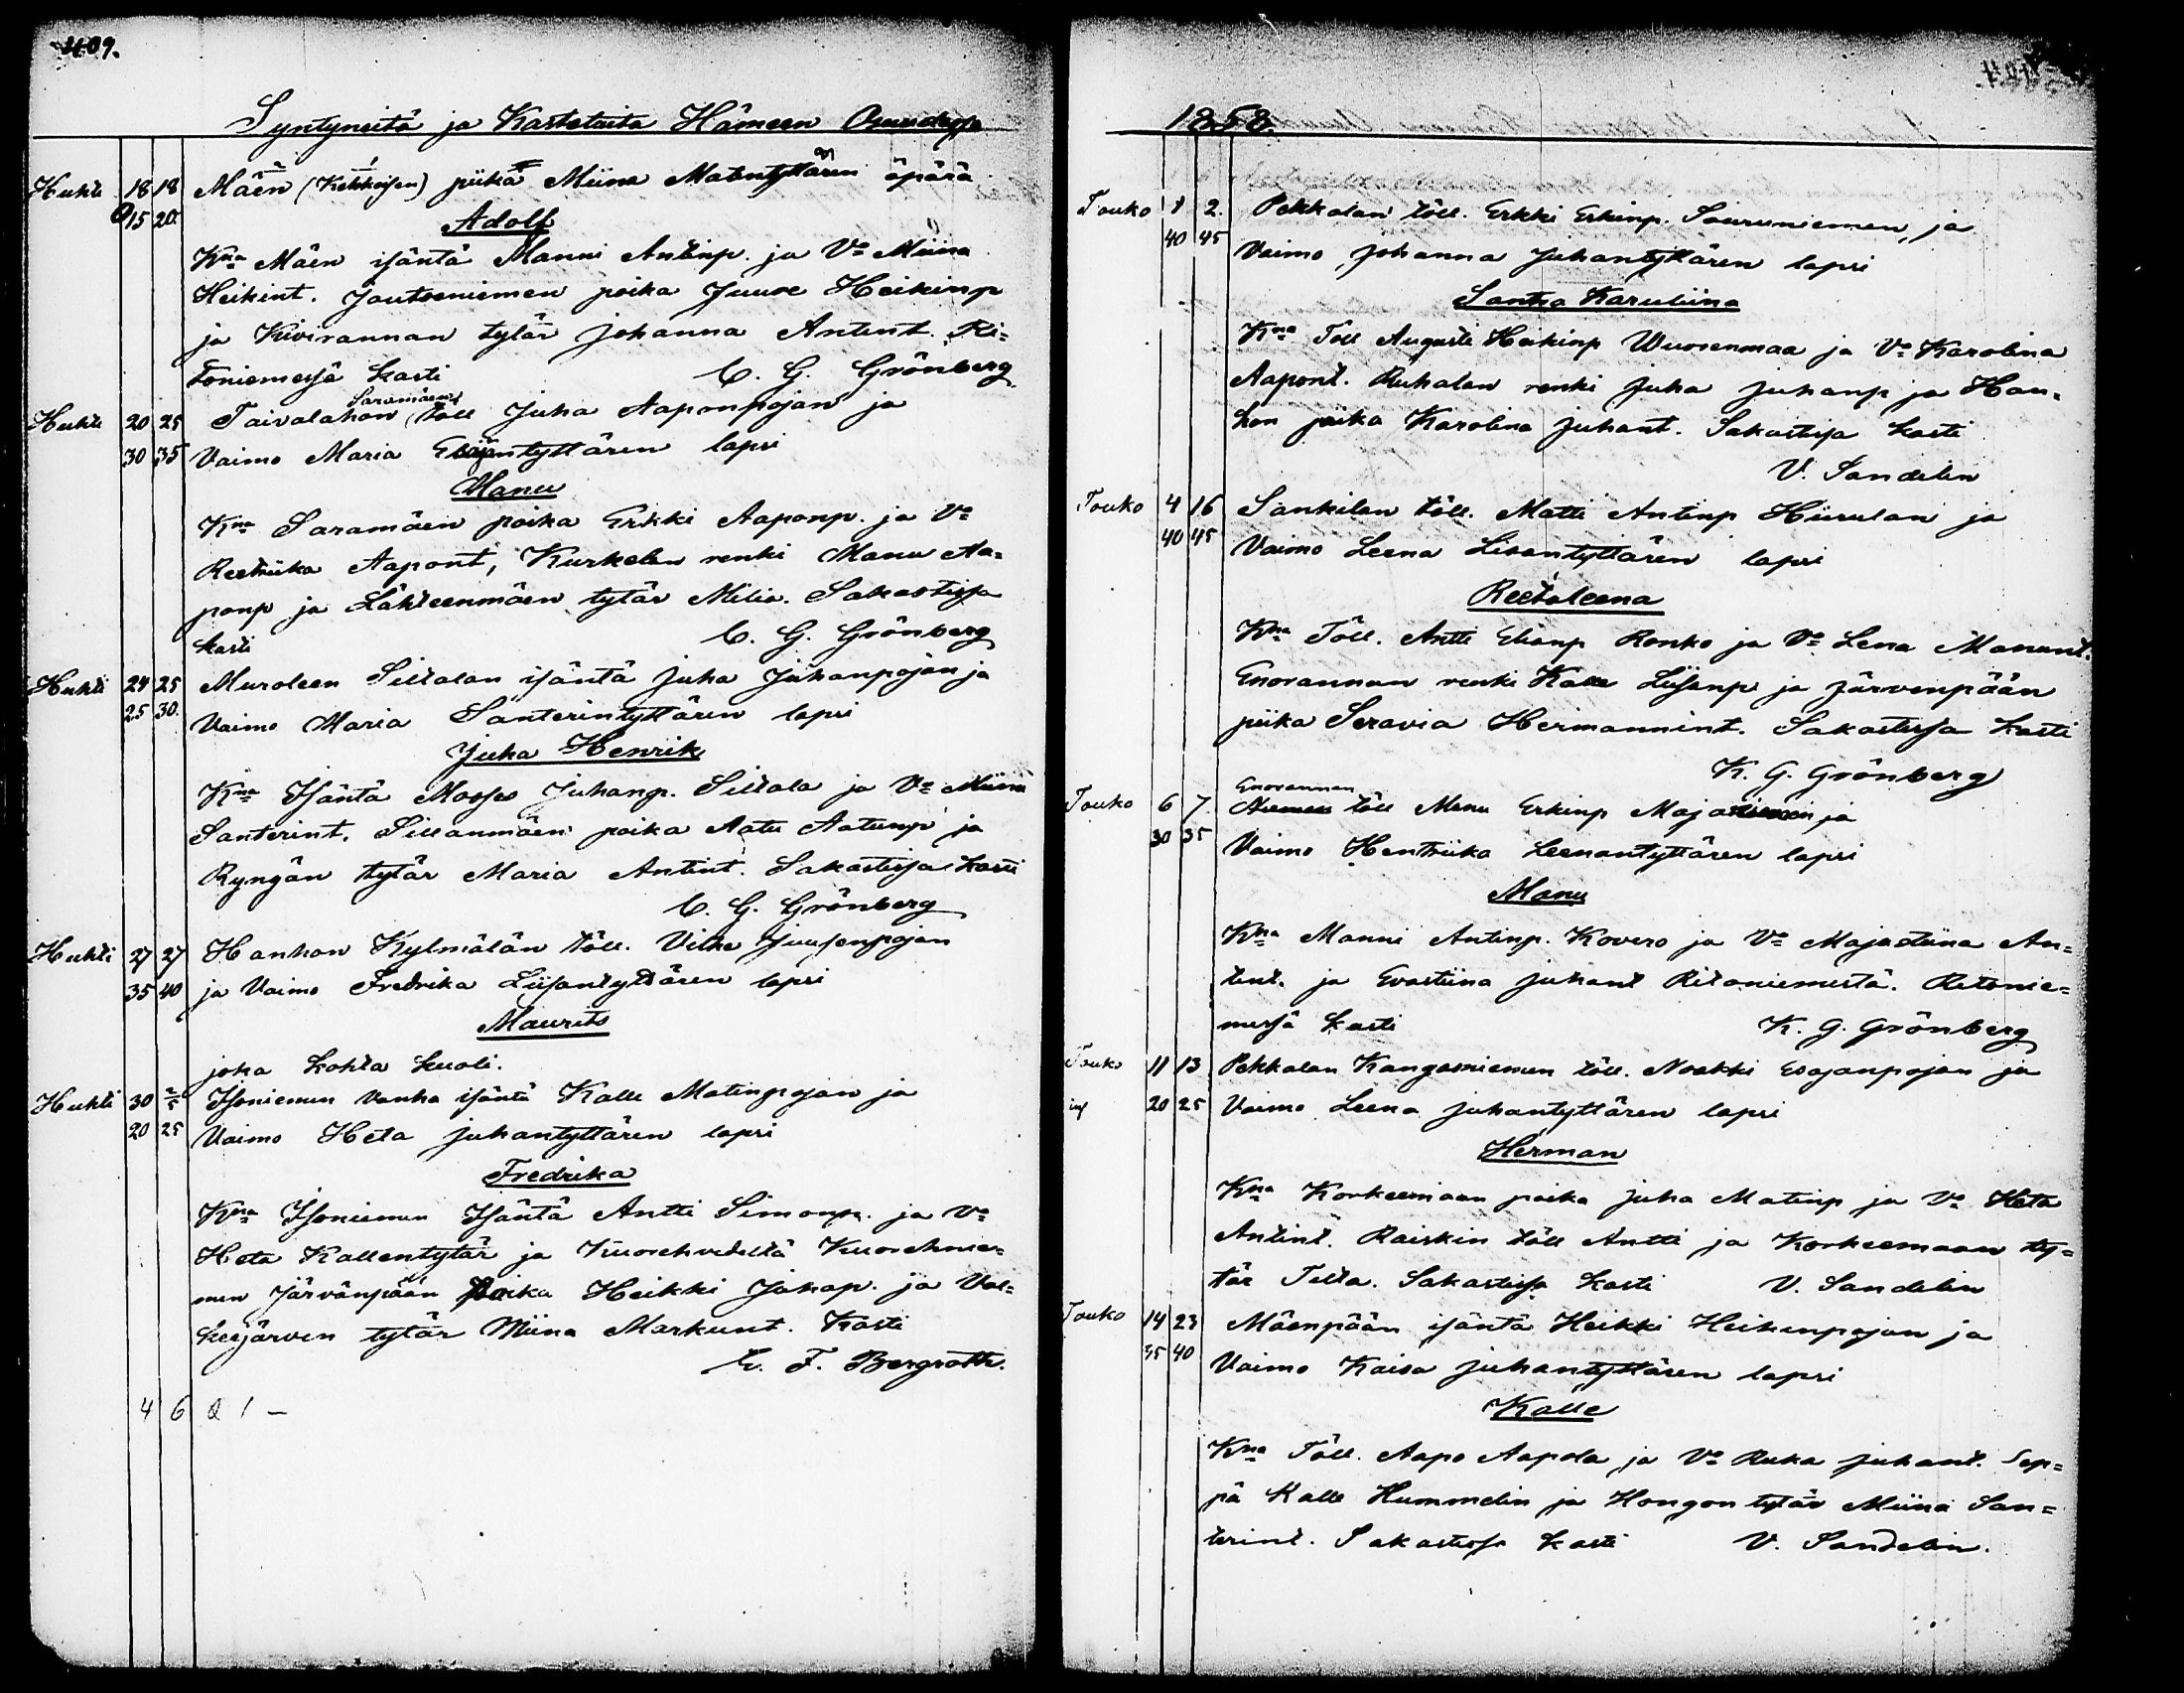 409.
Syntyneitä ja Kastetuita Hämeen Osuudessa
Huhti 18 18 Mäen (Kekkoisen) piika Miina Matintyttären äpärä
15 20. Adolf
Kna Mäen isäntä Manni Antinp. ja Vo Miina
Heikint. Joutseniemen poika Juuse Heikinp
ja Kivirannan tytär Johanna Antint. Ri=
toniemessä kasti C. G. Grönberg
Saramäen
Huhti 20 25 Taivalahon töll Juha Aaponpojan ja
30 35 Vaimo Maria tyttären lapsi
Manu
Kna Saramäen poika Erkki Aaponp. ja Vo
Reetriika Aapont, Kurkelan renki Manu Aa=
ponp ja Lähteenmäen tytär Milia. Sakastissa
kasti C. G. Grönberg
Huhti 24 25 Muroleen Siltalan isäntä Juha Juhanpojan ja
25 30. Vaimo Maria Santerintyttären lapsi
Juha Henrik
Kna Isäntä Mooses Juhanp. Siltala ja Vo Miina
Santerint. Sillanmäen poika Aatu Aatunp ja
Ryngän tytär Maria Antint. Sakastissa kasti
C. G. Grönberg
Huhti 27 27 Hanhon Kylmälän töll. Vilhe Juusenpojan
35 40 ja Vaimo Fredrika Liisantyttären lapsi
Maurits
joka kohta kuoli.
Huhti 30 2/5 Isoniemen vanha isäntä Kalle Matinpojan ja
20 25 Vaimo Heta Juhantyttären lapsi
Fredrika
Kna Isoniemen Isäntä Antti Simonp. ja Vo
Heta Kallentytär ja Kuorehvedeltä Kuorehnie=
men Järvänpään Poika Heikki Jahop. ja Val=
keejärven tytär Miina Markunt. Kasti
E. F. Bergroth.
4 6 a 1 —
1858.
Touko 1 2. Pekkalan töll. Erkki Erkinp. Sauruniemen, ja
40 45 Vaimo Johanna Juhantyttären lapsi
Santra Karuliina
Kna Töll Augusti Heikinp Wuorenmaa ja Vo Karolina
Aapont. Ruhalan renki Juha Juhanp ja Han=
hon piika Karolina Juhant. Sakastissa kasti
V. Sandelin
Touko 4 16 Sankilan töll. Matti Antinp Hiirulan ja
40 45 Vaimo Leena Lisantyttären lapsi
Reetaleena
Kna Töll. Antti Elianp Ronko ja Vo Lena Manunt.
Enorannan renki Kalle Liisanp ja Järvenpään
piika Seravia Hermannint. Sakastissa kasti
K. G. Grönberg
Enorannan
Touko 6 7. töll Manu Erkinp Majaniemen ja
30 35 Vaimo Hentriika Leenantyttären lapsi
Manu
Kna Manni Antinp. Kovero ja Vo Majastiina An=
tint. ja Evastiina Juhant Ritoniemestä. Ritonie=
messä kasti K. G. Grönberg
Touko 11 13 Pekkalan Kangasniemen töll. Noakki Esajanpojan ja
20 25 Vaimo Leena Juhantyttären lapsi
Herman
Kna Korkeemaan poika Juha Matinp ja Vo Heta
Antint. Raiskin töll Antti ja Korkeemaan ty=
tär Tilta. Sakastissa kasti V. Sandelin
Touko 14 23 Mäenpään isäntä Heikki Heikinpojan ja
35 40 Vaimo Kaisa Juhantyttären lapsi
Kalle
Kna Töll. Aapo Aapola ja Vo Ruka Juhant. Sep=
pä Kalle Hummelin ja Hongon tytär Miina San=
terint. Sakastissa kasti V. Sandelin.